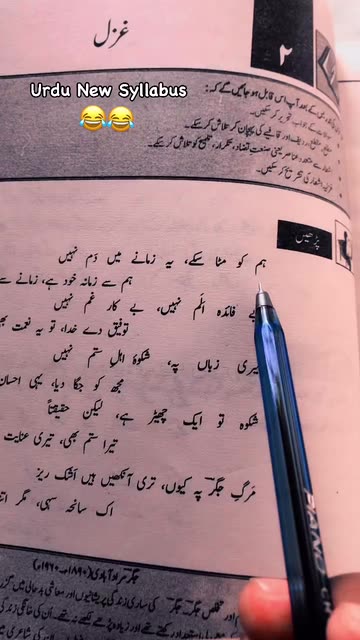 غزل
۲
Urdu New Syllabus
😂😂
کے بعد آپ اس قابل ہو جائیں گے کہ:
کے جواب تحریر کر سکیں۔
مطلع، مقطع، ردیف اور قافیے کی پہچان کر سکیں۔
صنعت تضاد، تکرار، تلمیح کو تلاش کر سکیں۔
اشعار کی تشریح کر سکیں۔
پڑھیں
ہم کو مٹا سکے، یہ زمانے میں دَم نہیں
ہم سے زمانہ خود ہے، زمانے سے
بے فائدہ اَلَم نہیں، بے کار غم نہیں
توفیق دے خدا، تو یہ نعمت بھی
میری زباں پہ، شکوۂ اہلِ ستم نہیں
مجھ کو جگا دیا، یہی احسان
شکوہ تو ایک چھیڑ ہے، لیکن حقیقتاً
تیرا ستم بھی، تیری عنایت
مَرگِ جگر پہ کیوں، تری آنکھیں ہیں اَشک ریز
اک سانحہ سہی، مگر اتنا
جگر مراد آبادی (۱۸۹۰ء۔۱۹۶۰ء)
اور تخلص جگر۔ جگر کی ساری زندگی پریشانیوں اور معاشی بدحالی میں گزر